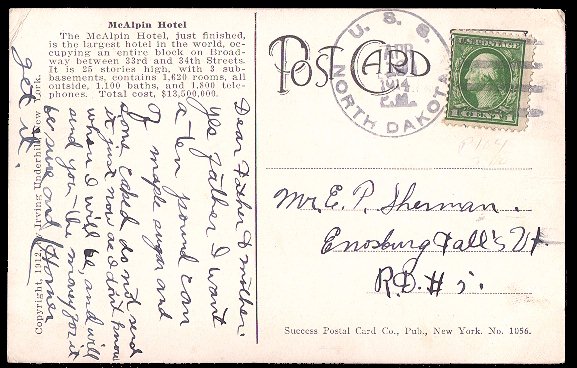 McAlpin Hotel
The McAlpin Hotel, just finished,
is the largest hotel in the world, oc-
cupying an entire block on Broad-
way between 33rd and 34th Streets.
It is 25 stories high, with 3 sub-
basements, contains 1,620 rooms, all
outside, 1,100 baths, and 1,800 tele-
phones. Total cost, $13,500,000.
POST CARD
U. S. S.
APR
1914
NORTH DAKOTA
U.S. POSTAGE
1 CENT 1
Dear Father & mother:
Yes father I want
a ten pound can
of maple sugar and
some caked do not send
it just now as I don't know
where I will be, and will
send you the money for it
be sure and
get it.
Homer
Mr. E. P. Sherman.
Enosburg Fall's Vt
R.D. # 5.
Copyright, 1912, by Irving Underhill, New York.
Success Postal Card Co., Pub., New York. No. 1056.